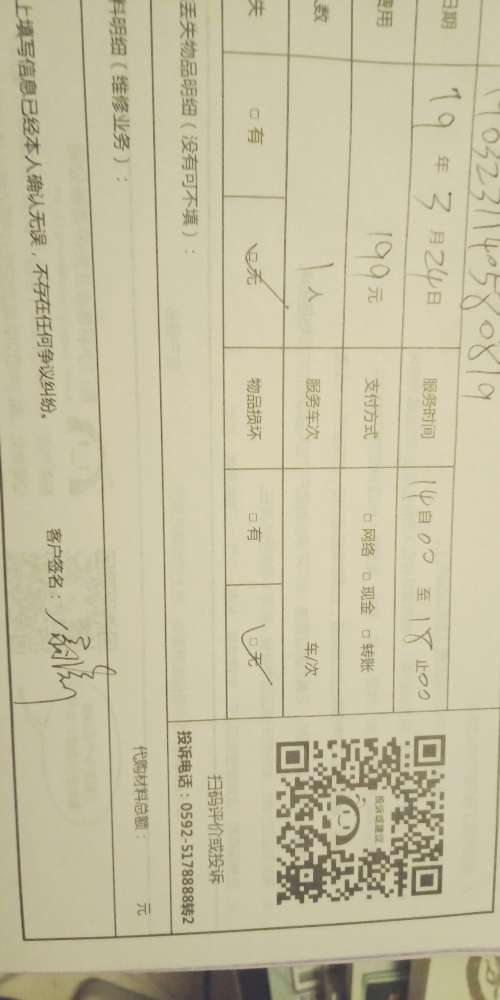 日期 19 年 3 月 24 日 服务时间 14 自 00 至 18 止 00
费用 199 元 支付方式 □ 网络 □ 现金 □ 转账
数 1 人 服务车次 车/次
失 □ 有 □ 无 物品损坏 □ 有 □ 无
丢失物品明细（没有可不填）：
扫码评价或投诉
投诉电话：0592-5178888转2
投诉或建议
料明细（维修业务）：
代购材料总额： 元
上填写信息已经本人确认无误，不存在任何争议纠纷。
客户签名：